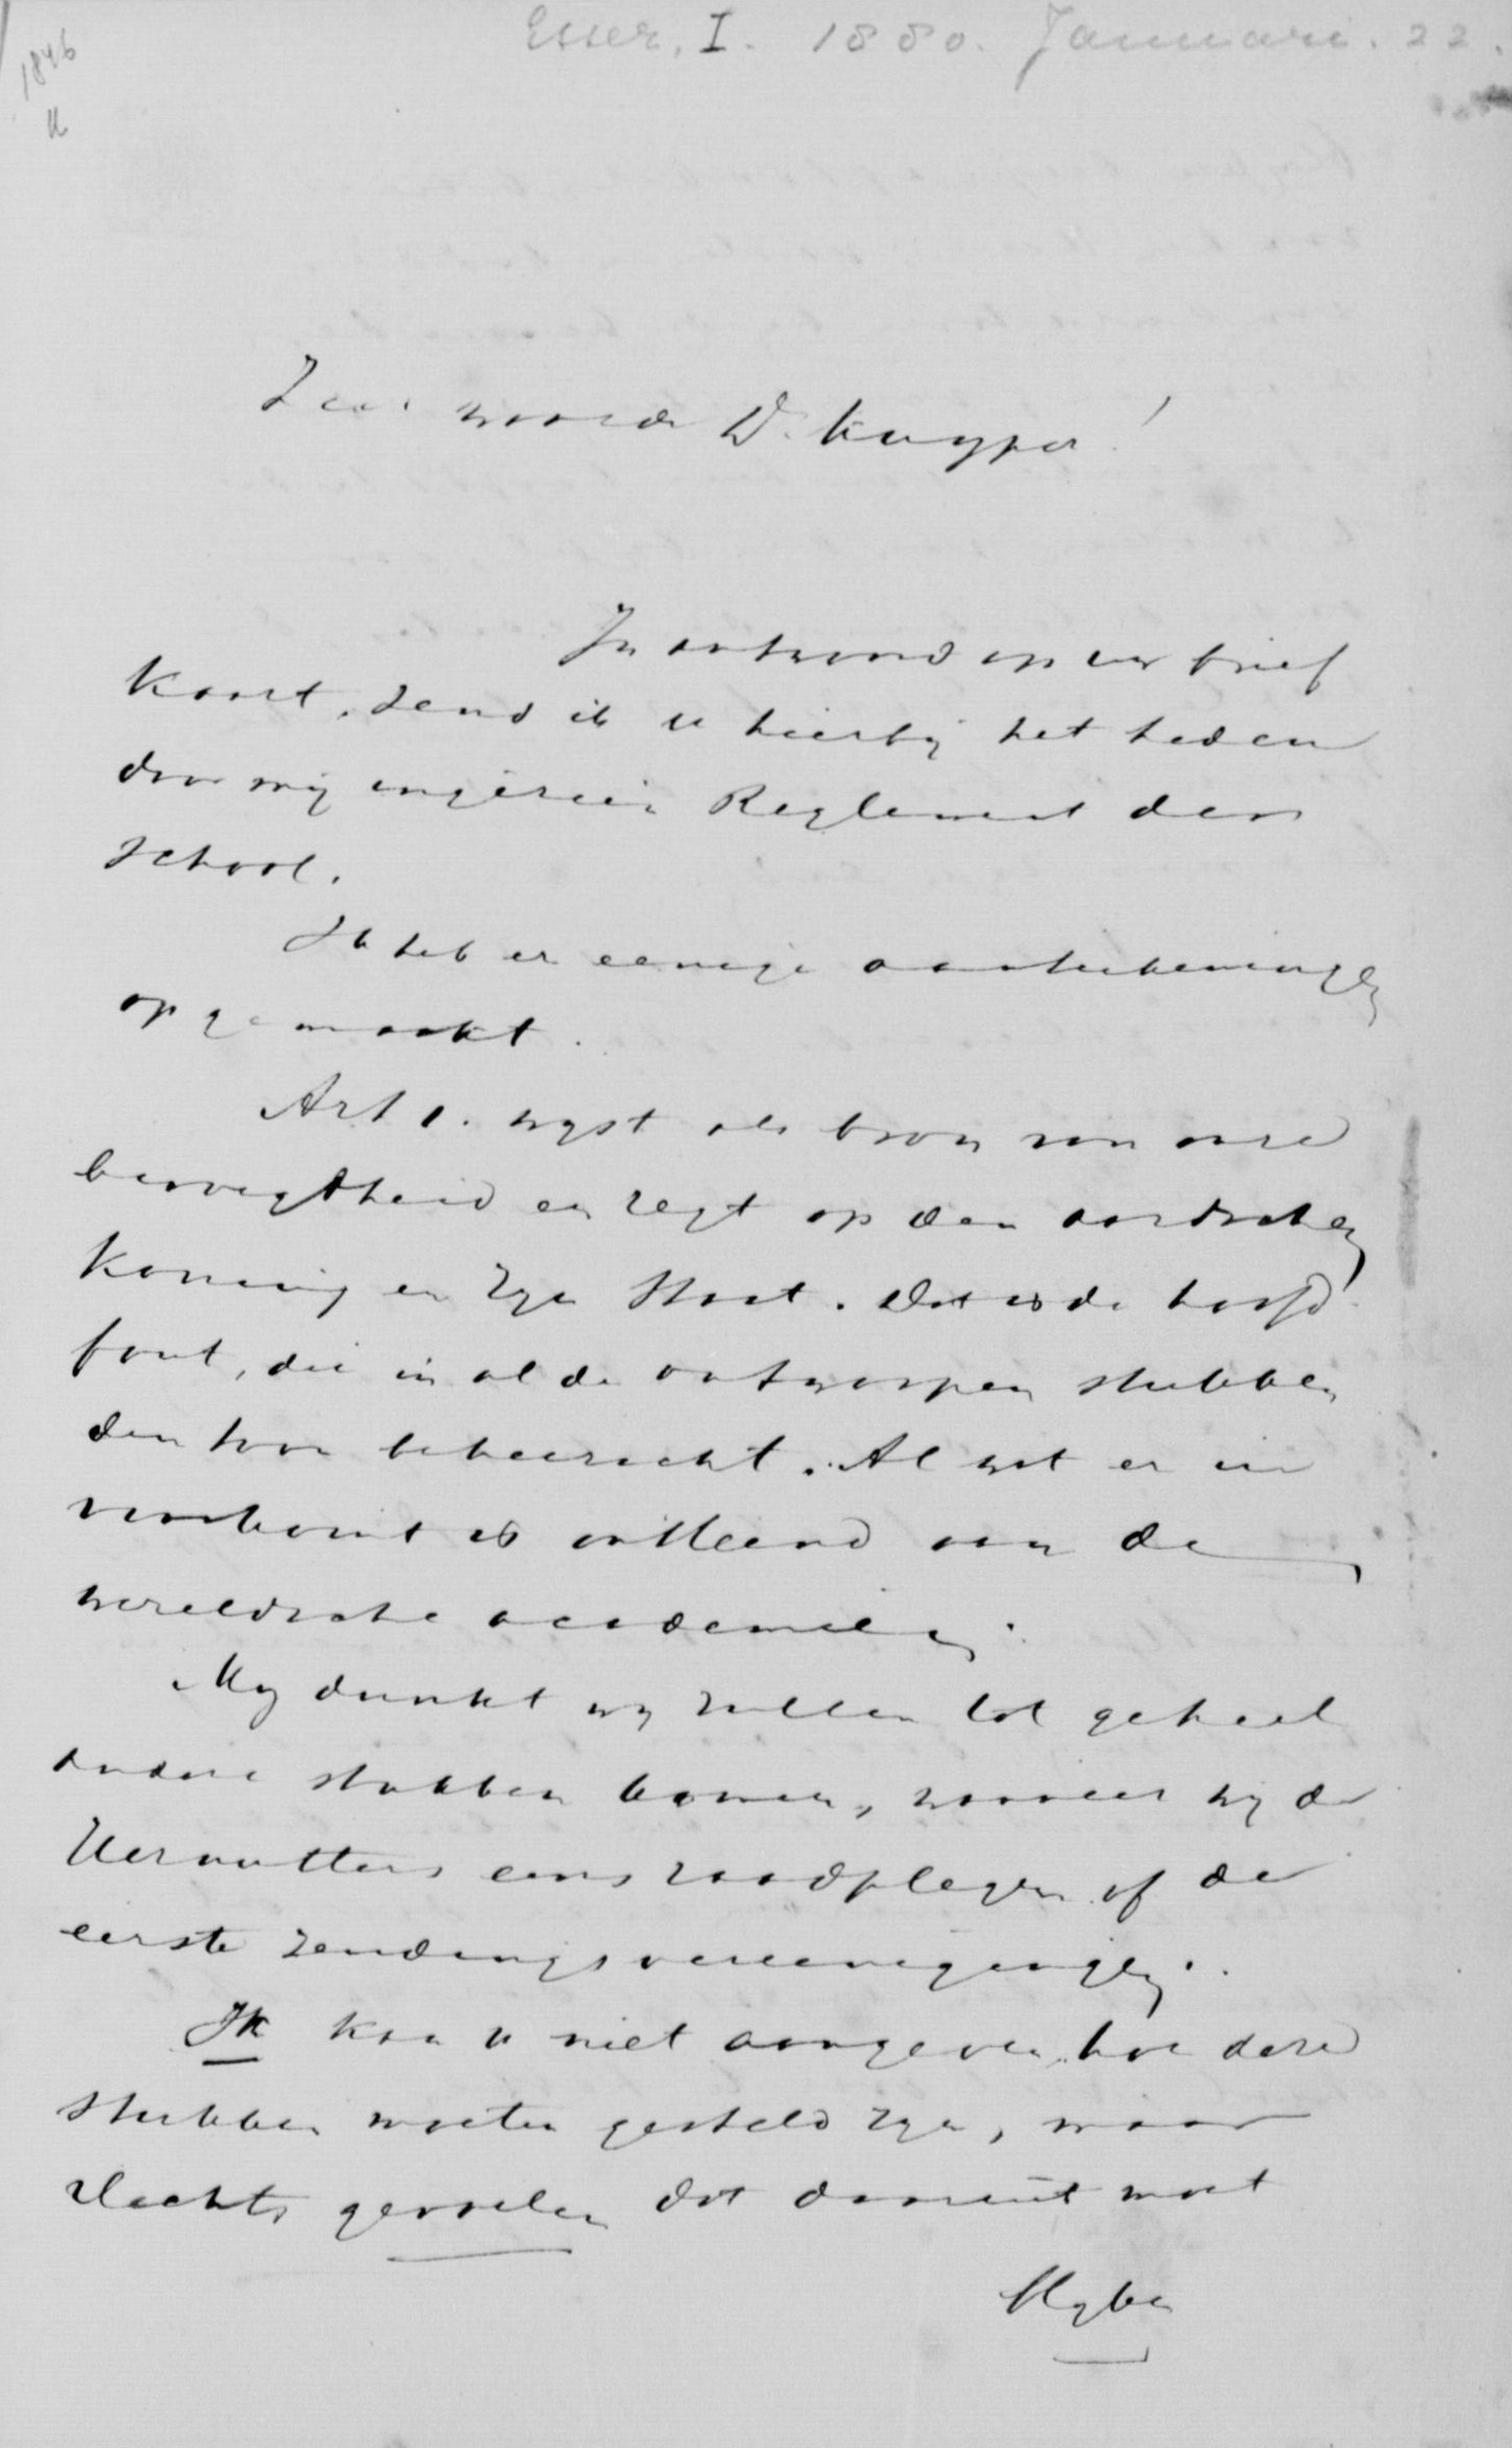 Esser, I. 1880. Januari. 22.
1846
Zeer waarde Dr. Kuyper!
In antwoord op uw brief
kaart, zend ik u hierbij het heden
door mij ingezien Reglement der
school.
Ik heb er eenige aanteekeningen
op gemaakt.
Art 1. wyst als bron van onze
bevoegdheid en regt op den aardschen
Koning en zyn Staat. Dat is de hoofd
fout, die in al de ontworpen stukken
den toon beheerscht. Al wat er in
voorkomt is ontleend aan de
wereldsche academien.
My dunkt wy zullen tot geheel
andere stukken komen, wanneer wy de
Hernutters eens raadplegen of de
eerste zendingsvereenigingen.
Ik kan u niet aangeven hoe deze
stukken moeten gesteld zyn, maar
slechts gevoelen dat daaruit moet
blyken